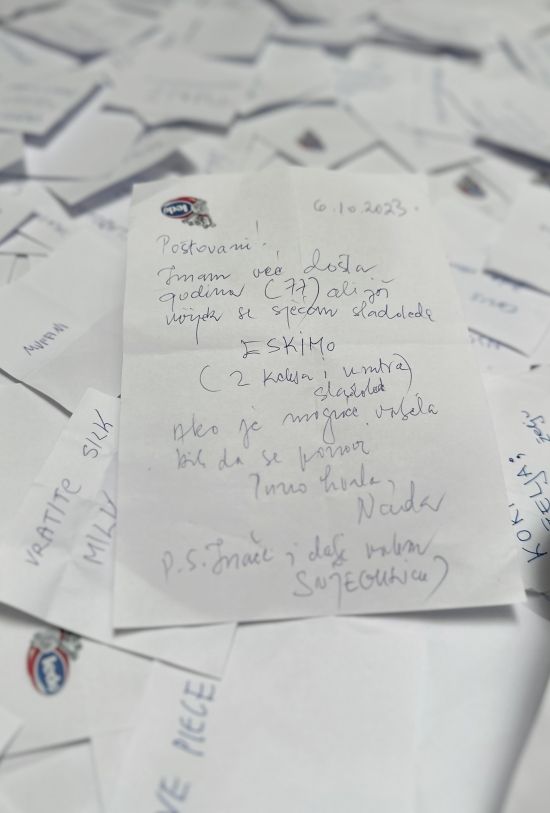 Ledo
6.10.2023.
Poštovani!
Imam već dosta
godina (77) ali još
uvijek se sjećam sladoleda
ESKIMO
(2 keksa i unutra
sladoled)
Ako je moguće voljela
bih da se ponovi
Puno hvala,
Nada
P.S. Inače i dalje volim
SNJEGULJICU)
MILK
VRATITE
KOKI
ŽELJA;
Ledo
VE PIECE